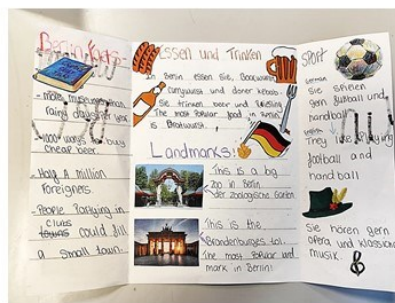 Berlin Facts-
- more museums than
rainy days per year
- 1000 ways to buy
cheap beer.
- Half A million
foreigners.
- People Partying in
clubs
could fill
a small town.
Essen und Trinken
In Berlin essen Sie, Bockwurst,
currywurst and doner kebab.
Sie trinken beer und Riesling
The most Popular food in Berlin
is Bratwurst.
Landmarks!
This is a big
zoo in Berlin.
der zoologische Garten
This is the
Brandenburges tol.
The most Popular land
mark in Berlin!
SPORT
German
Sie spielen
gern fußball und
handball
They like playing
football and
handball
Sie hören gern
opera und klassische
musik.